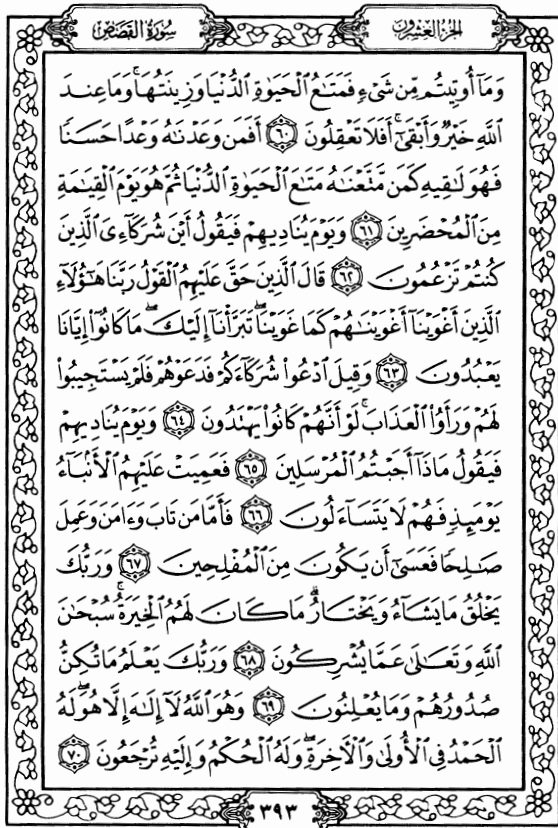 سُورَةُ القَصَصِ
الجزء العشرون
وَمَآ أُوتِيتُم مِّن شَىْءٍ فَمَتَـٰعُ ٱلْحَيَوٰةِ ٱلدُّنْيَا وَزِينَتُهَا ۚ وَمَا عِندَ
ٱللَّهِ خَيْرٌ وَأَبْقَىٰٓ ۚ أَفَلَا تَعْقِلُونَ ٦٠ أَفَمَن وَعَدْنَـٰهُ وَعْدًا حَسَنًا
فَهُوَ لَـٰقِيهِ كَمَن مَّتَّعْنَـٰهُ مَتَـٰعَ ٱلْحَيَوٰةِ ٱلدُّنْيَا ثُمَّ هُوَ يَوْمَ ٱلْقِيَـٰمَةِ
مِنَ ٱلْمُحْضَرِينَ ٦١ وَيَوْمَ يُنَادِيهِمْ فَيَقُولُ أَيْنَ شُرَكَآءِىَ ٱلَّذِينَ
كُنتُمْ تَزْعُمُونَ ٦٢ قَالَ ٱلَّذِينَ حَقَّ عَلَيْهِمُ ٱلْقَوْلُ رَبَّنَا هَـٰٓؤُلَآءِ
ٱلَّذِينَ أَغْوَيْنَآ أَغْوَيْنَـٰهُمْ كَمَا غَوَيْنَا ۖ تَبَرَّأْنَآ إِلَيْكَ ۖ مَا كَانُوٓا۟ إِيَّانَا
يَعْبُدُونَ ٦٣ وَقِيلَ ٱدْعُوا۟ شُرَكَآءَكُمْ فَدَعَوْهُمْ فَلَمْ يَسْتَجِيبُوا۟
لَهُمْ وَرَأَوُا۟ ٱلْعَذَابَ ۚ لَوْ أَنَّهُمْ كَانُوا۟ يَهْتَدُونَ ٦٤ وَيَوْمَ يُنَادِيهِمْ
فَيَقُولُ مَاذَآ أَجَبْتُمُ ٱلْمُرْسَلِينَ ٦٥ فَعَمِيَتْ عَلَيْهِمُ ٱلْأَنۢبَآءُ
يَوْمَئِذٍ فَهُمْ لَا يَتَسَآءَلُونَ ٦٦ فَأَمَّا مَن تَابَ وَءَامَنَ وَعَمِلَ
صَـٰلِحًا فَعَسَىٰٓ أَن يَكُونَ مِنَ ٱلْمُفْلِحِينَ ٦٧ وَرَبُّكَ
يَخْلُقُ مَا يَشَآءُ وَيَخْتَارُ ۗ مَا كَانَ لَهُمُ ٱلْخِيَرَةُ ۚ سُبْحَـٰنَ
ٱللَّهِ وَتَعَـٰلَىٰ عَمَّا يُشْرِكُونَ ٦٨ وَرَبُّكَ يَعْلَمُ مَا تُكِنُّ
صُدُورُهُمْ وَمَا يُعْلِنُونَ ٦٩ وَهُوَ ٱللَّهُ لَآ إِلَـٰهَ إِلَّا هُوَ ۖ لَهُ
ٱلْحَمْدُ فِى ٱلْأُولَىٰ وَٱلْـَٔاخِرَةِ ۖ وَلَهُ ٱلْحُكْمُ وَإِلَيْهِ تُرْجَعُونَ ٧٠
٣٩٣